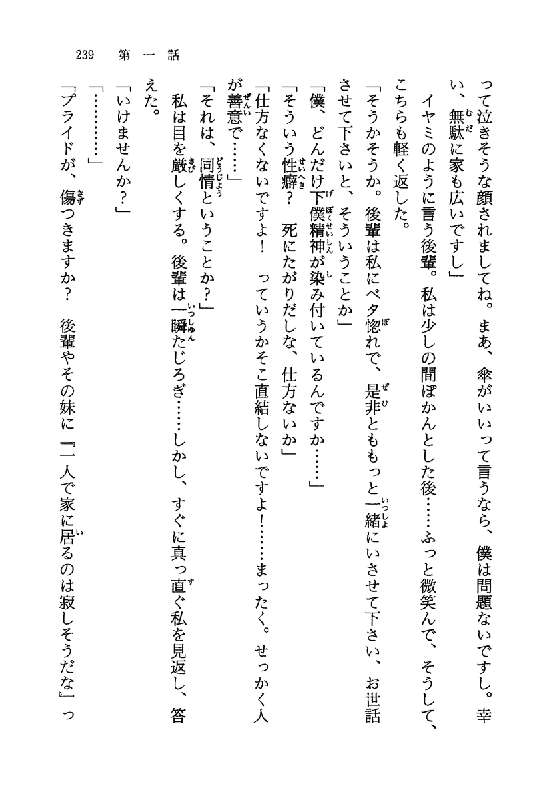 239　第一話
って泣きそうな顔されましてね。まあ、傘がいいって言うなら、僕は問題ないですし。幸
い、無駄に家も広いですし」
　イヤミのように言う後輩。私は少しの間ぽかんとした後……ふっと微笑んで、そうして、
こちらも軽く返した。
「そうかそうか。後輩は私にベタ惚れで、是非とももっと一緒にいさせて下さい、お世話
させて下さいと、そういうことか」
「僕、どんだけ下僕精神が染み付いているんですか……」
「そういう性癖？　死にたがりだしな、仕方ないか」
「仕方なくないですよ！　っていうかそこ直結しないですよ！……まったく。せっかく人
が善意で……」
「それは、同情ということか？」
　私は目を厳しくする。後輩は一瞬たじろぎ……しかし、すぐに真っ直ぐ私を見返し、答
えた。
「いけませんか？」
「…………」
「プライドが、傷つきますか？　後輩やその妹に『一人で家に居るのは寂しそうだな』っ